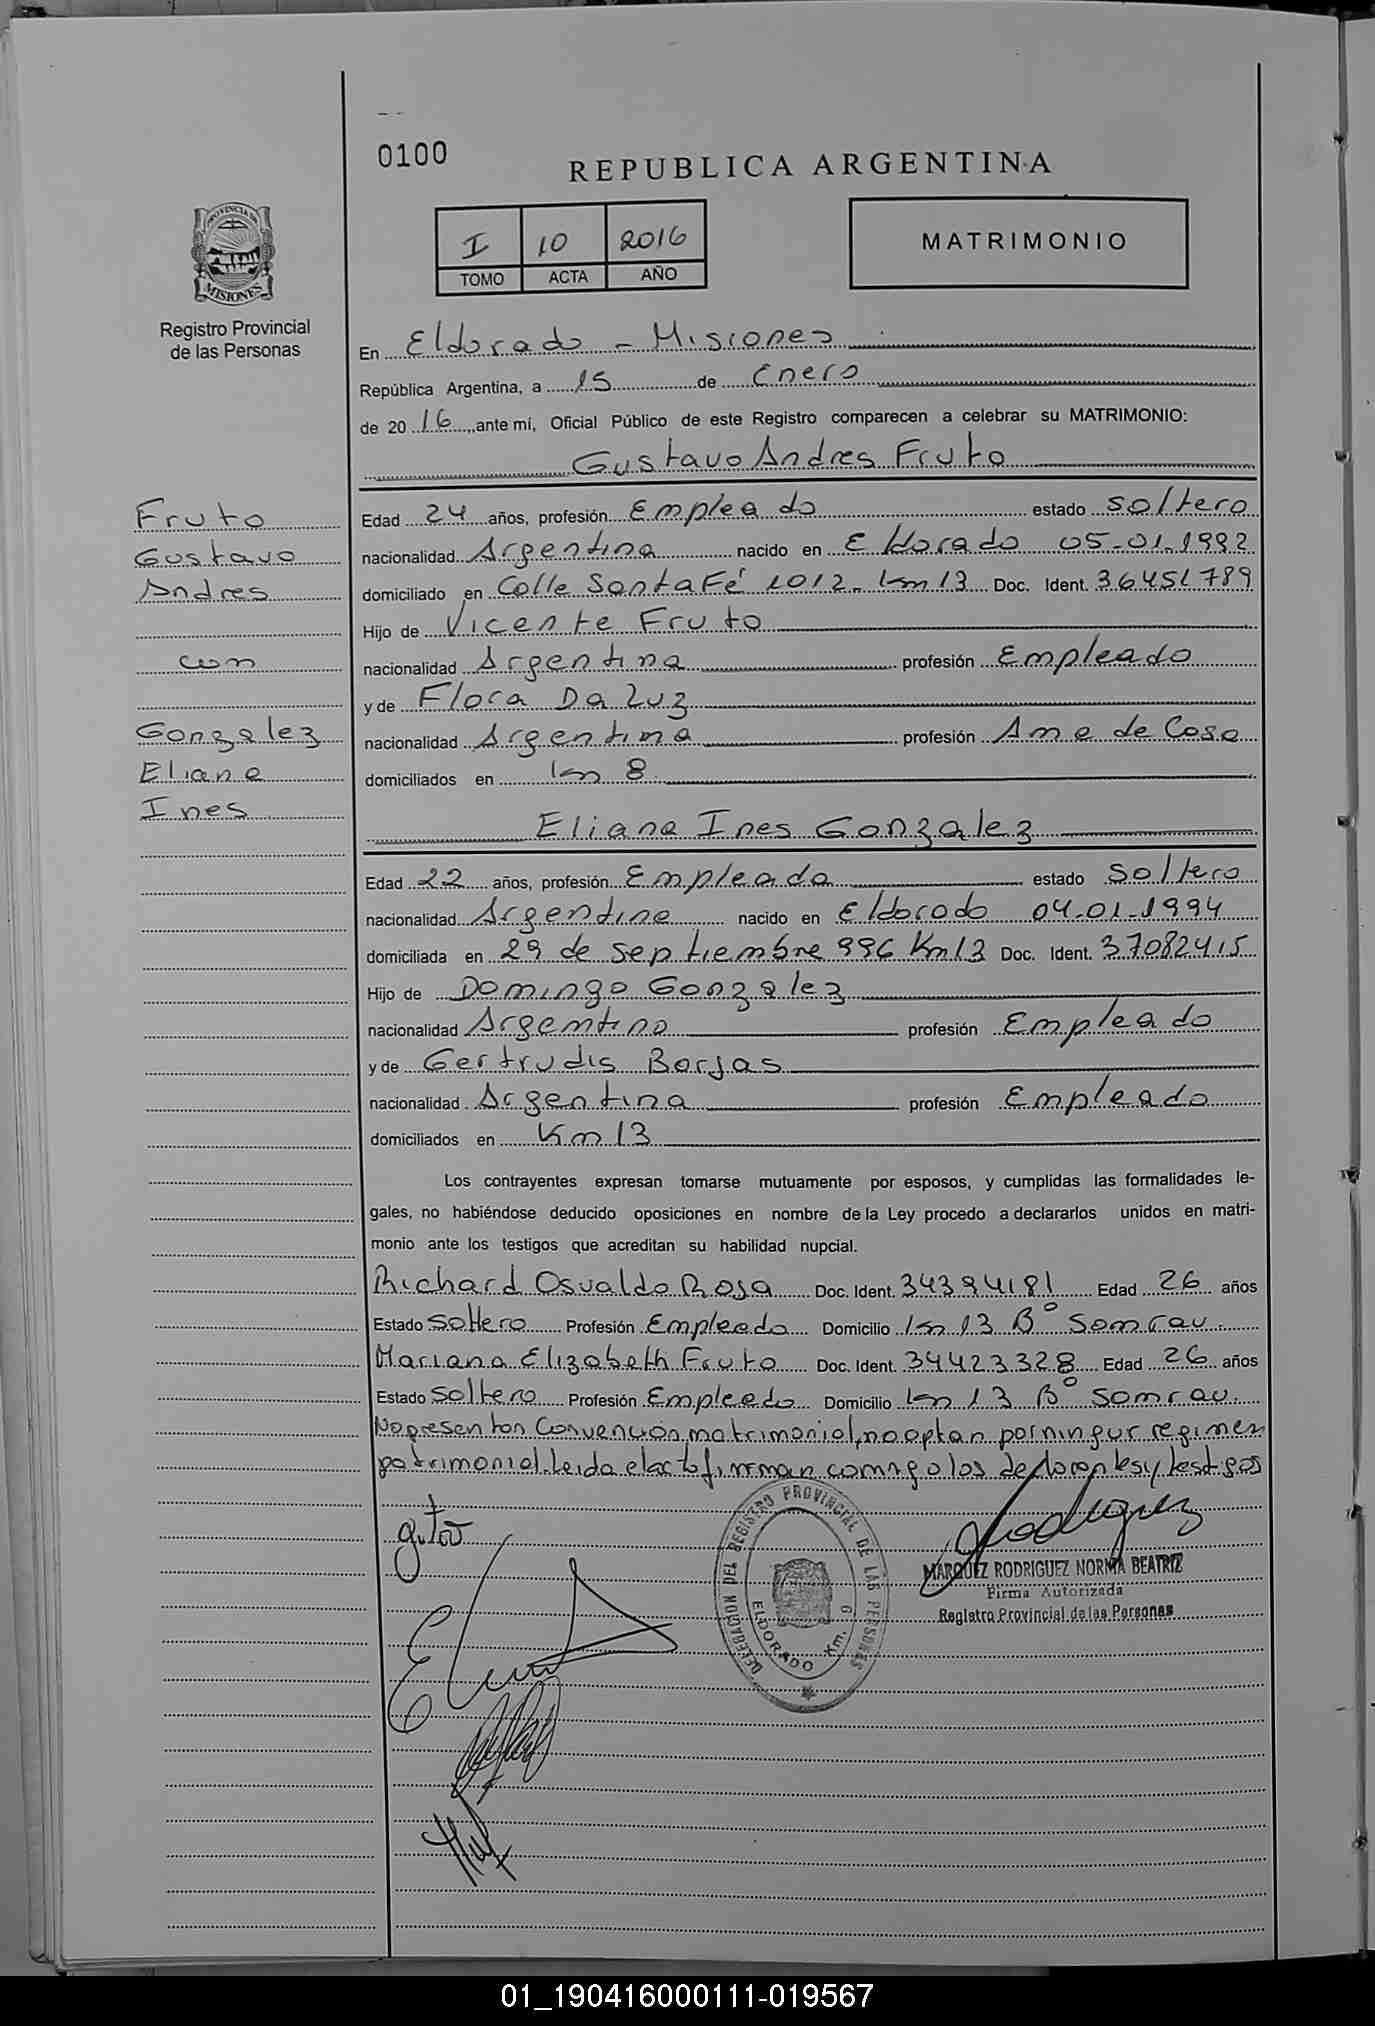 0100
REPUBLICA ARGENTINA
I 10 2016
TOMO ACTA AÑO
MATRIMONIO
PROVINCIA DE
MISIONES
Registro Provincial
de las Personas
En Eldorado - Misiones
República Argentina, a 15 de Enero
de 2016, ante mí, Oficial Público de este Registro comparecen a celebrar su MATRIMONIO:
Gustavo Andres Fruto
Fruto
Gustavo
Andres
con
Gonzalez
Eliana
Ines
Edad 24 años, profesión Empleado estado soltero
nacionalidad Argentina nacido en Eldorado 05-01-1992
domiciliado en Calle Santa Fé 1012 - Km 13 Doc. Ident. 36451789
Hijo de Vicente Fruto
nacionalidad Argentina profesión Empleado
y de Flora Da Luz
nacionalidad Argentina profesión Ama de Casa
domiciliados en Km 8
Eliana Ines Gonzalez
Edad 22 años, profesión Empleada estado Soltera
nacionalidad Argentina nacido en Eldorado 04-01-1994
domiciliada en 29 de septiembre 996 Km 13 Doc. Ident. 37082415
Hijo de Domingo Gonzalez
nacionalidad Argentino profesión Empleado
y de Gertrudis Borjas
nacionalidad Argentina profesión Empleada
domiciliados en Km 13
Los contrayentes expresan tomarse mutuamente por esposos, y cumplidas las formalidades le-
gales, no habiéndose deducido oposiciones en nombre de la Ley procedo a declararlos unidos en matri-
monio ante los testigos que acreditan su habilidad nupcial.
Richard Osvaldo Rosa Doc. Ident. 34394181 Edad 26 años
Estado soltero Profesión Empleado Domicilio Km 13 B° Somrau
Mariana Elizabeth Fruto Doc. Ident. 34423328 Edad 26 años
Estado soltera Profesión Empleada Domicilio Km 13 B° Somrau
No presentan Convención matrimonial, no optan por ningun regimen
patrimonial. Leida el acta firman conmigo los declarantes y testigos
DELEGACION DEL REGISTRO PROVINCIAL DE LAS PERSONAS
ELDORADO Km.
MARQUEZ RODRIGUEZ NORMA BEATRIZ
Firma Autorizada
Registro Provincial de las Personas
01_190416000111-019567